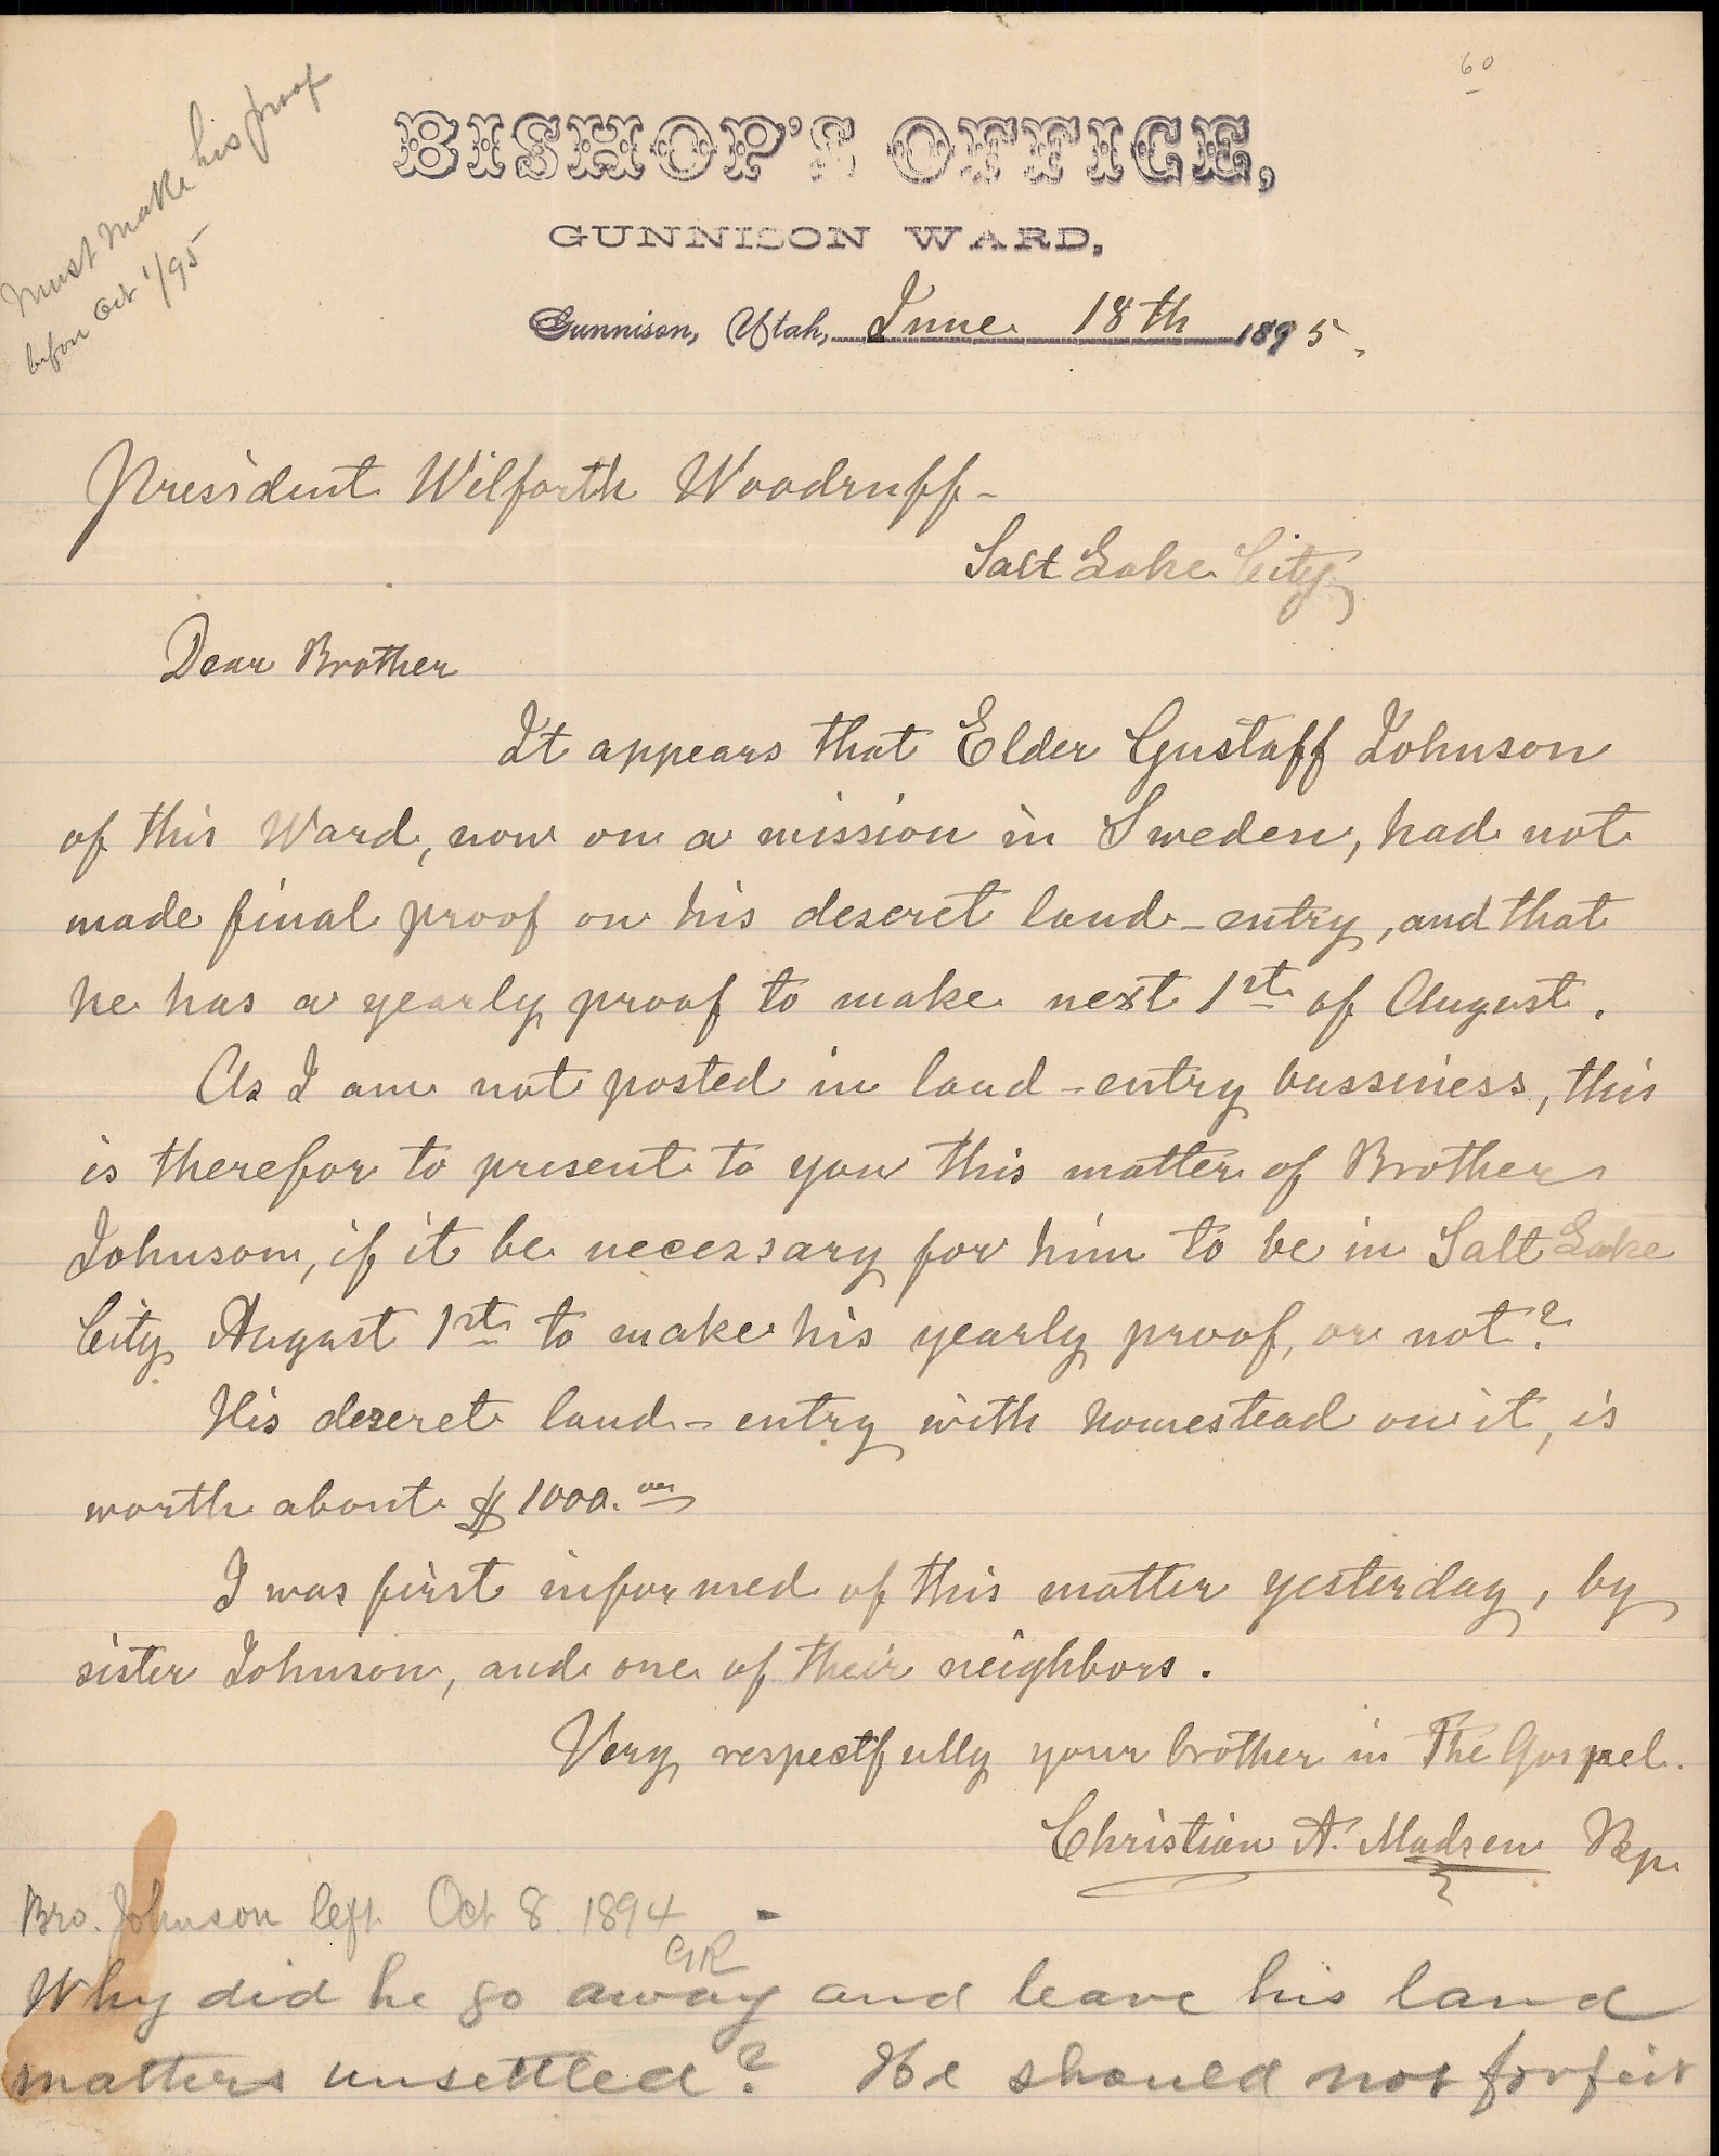 60
Must make his proof
before Oct 1/95
BISHOP'S OFFICE,
GUNNISON WARD,
Gunnison, Utah, June 18th 1895.
President Wilforth Woodruff-
Salt Lake City
Dear Brother
It appears that Elder Gustaff Johnson
of this Ward, now on a mission in Sweden, had not
made final proof on his deseret land-entry, and that
he has a yearly proof to make next 1st of August.
As I am not posted in land-entry bussiness, this
is therefor to present to you this matter of Brother
Johnson, if it be necessary for him to be in Salt Lake
City August 1st to make his yearly proof, or not?
His deseret land-entry with homestead on it, is
worth about $1000.00
I was first informed of this matter yesterday, by
sister Johnson, and one of their neighbors.
Very respectfully your brother in The Gospel.
Christian A. Madsen Bp.
Bro. Johnson left Oct 8. 1894
GR
Why did he go away and leave his land
matters unsettled? He should not forfeit